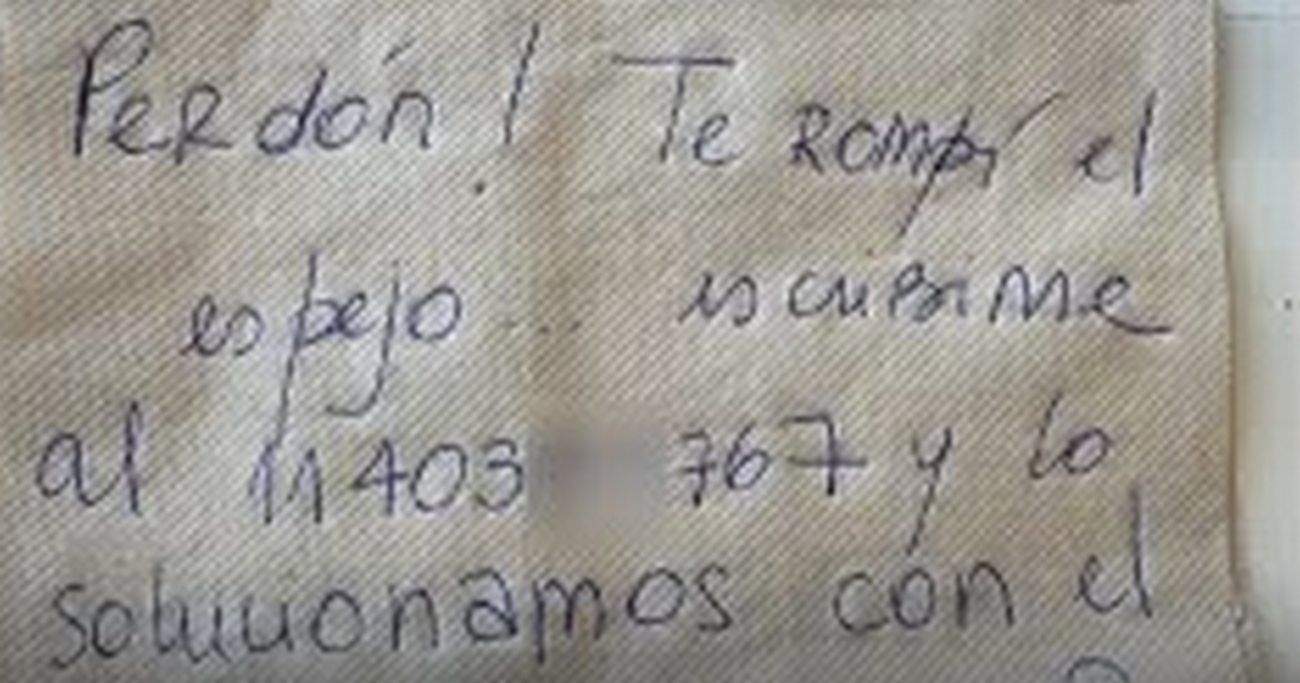 Perdón! Te Rompí el
espejo... escribime
al 11403 767 y lo
solucionamos con el